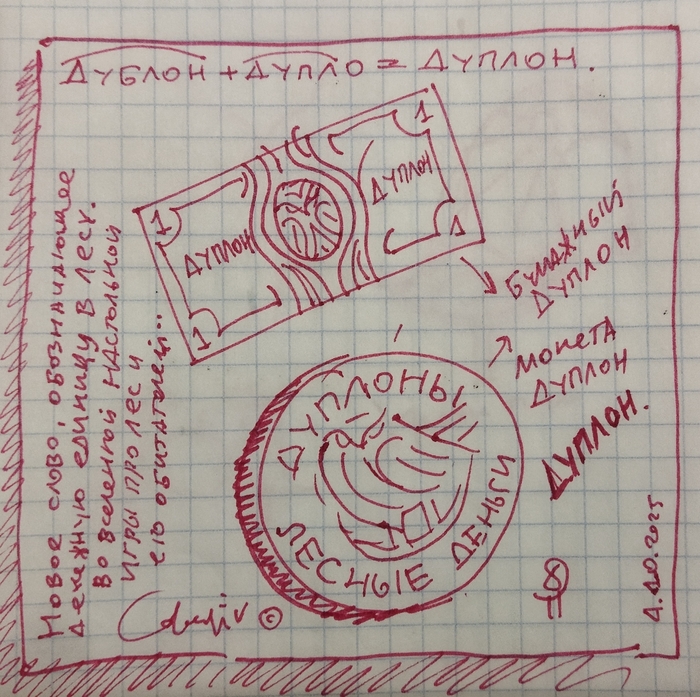 ДУБЛОН + ДУПЛО = ДУПЛОН.
1
1
ДУПЛОН
ДУПЛОН
1
1
БУМАЖНЫЙ
ДУПЛОН
МОНЕТА
ДУПЛОН
ДУПЛОН.
ДУПЛОНЫ
ЛЕСНЫЕ ДЕНЬГИ
Новое слово, обозначающее
денежную единицу в лесу.
Во вселенной настольной
игры про лес и
его обитателей..
©
1.10.2025